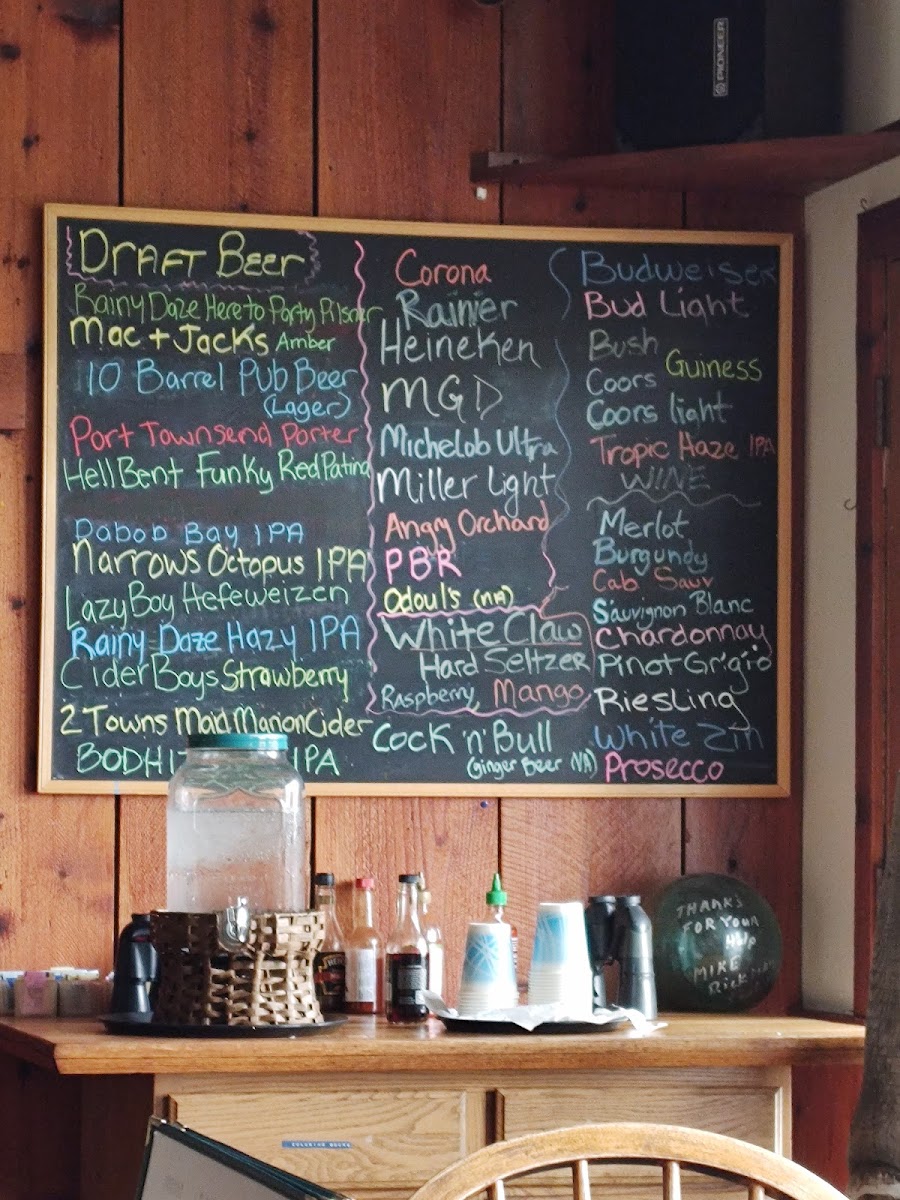 PIONEER
Draft Beer
Rainy Daze Here to Party Pilsner
Mac + Jacks Amber
10 Barrel Pub Beer
(Lager)
Port Townsend Porter
HellBent Funky Red Patina
Dabob Bay IPA
Narrows Octopus IPA
LazyBoy Hefeweizen
Rainy-Daze Hazy IPA
CiderBoys Strawberry
2 Towns Maid Marion Cider
BODHI IPA
Corona
Rainier
Heineken
MGD
Michelob Ultra
Miller Light
Angry Orchard
PBR
Odoul's (NA)
White Claw
Hard Seltzer
Raspberry, Mango
Cock 'n' Bull
(Ginger Beer NA)
Budweiser
Bud Light
Bush
Guiness
Coors
Coors light
Tropic Haze IPA
WINE
Merlot
Burgundy
Cab Sauv
Sauvignon Blanc
Chardonnay
Pinot Grigio
Riesling
White Zin
Prosecco
THANKS
FOR YOUR
Help
MIKE
COLORING BOOKS